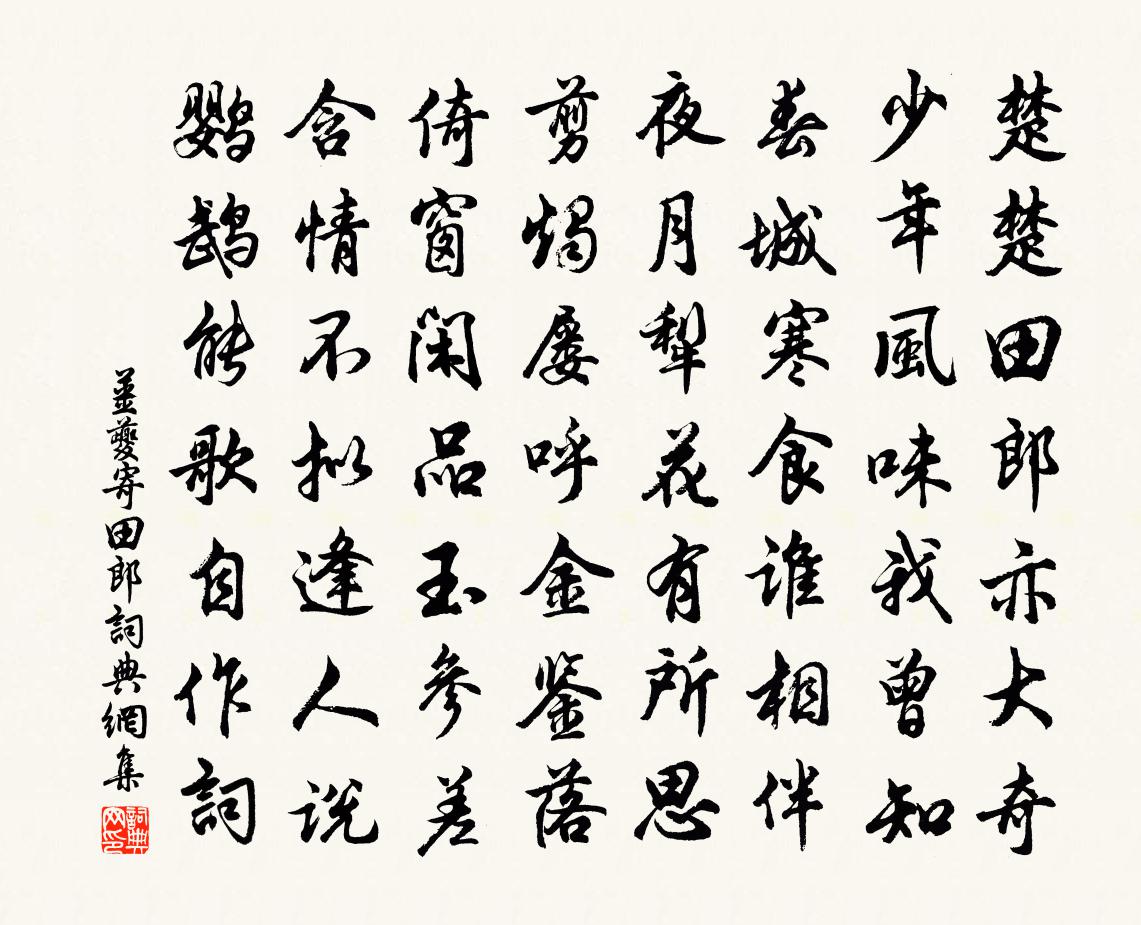 楚楚田郎亦大奇
少年風味我曾知
春城寒食誰相伴
夜月犁花有所思
剪燭屡呼金鉴落
倚窗閑品玉參差
含情不拟逢人說
鹦鹉能歌自作詞
姜夔寄田郎詞典網集
詞典网印